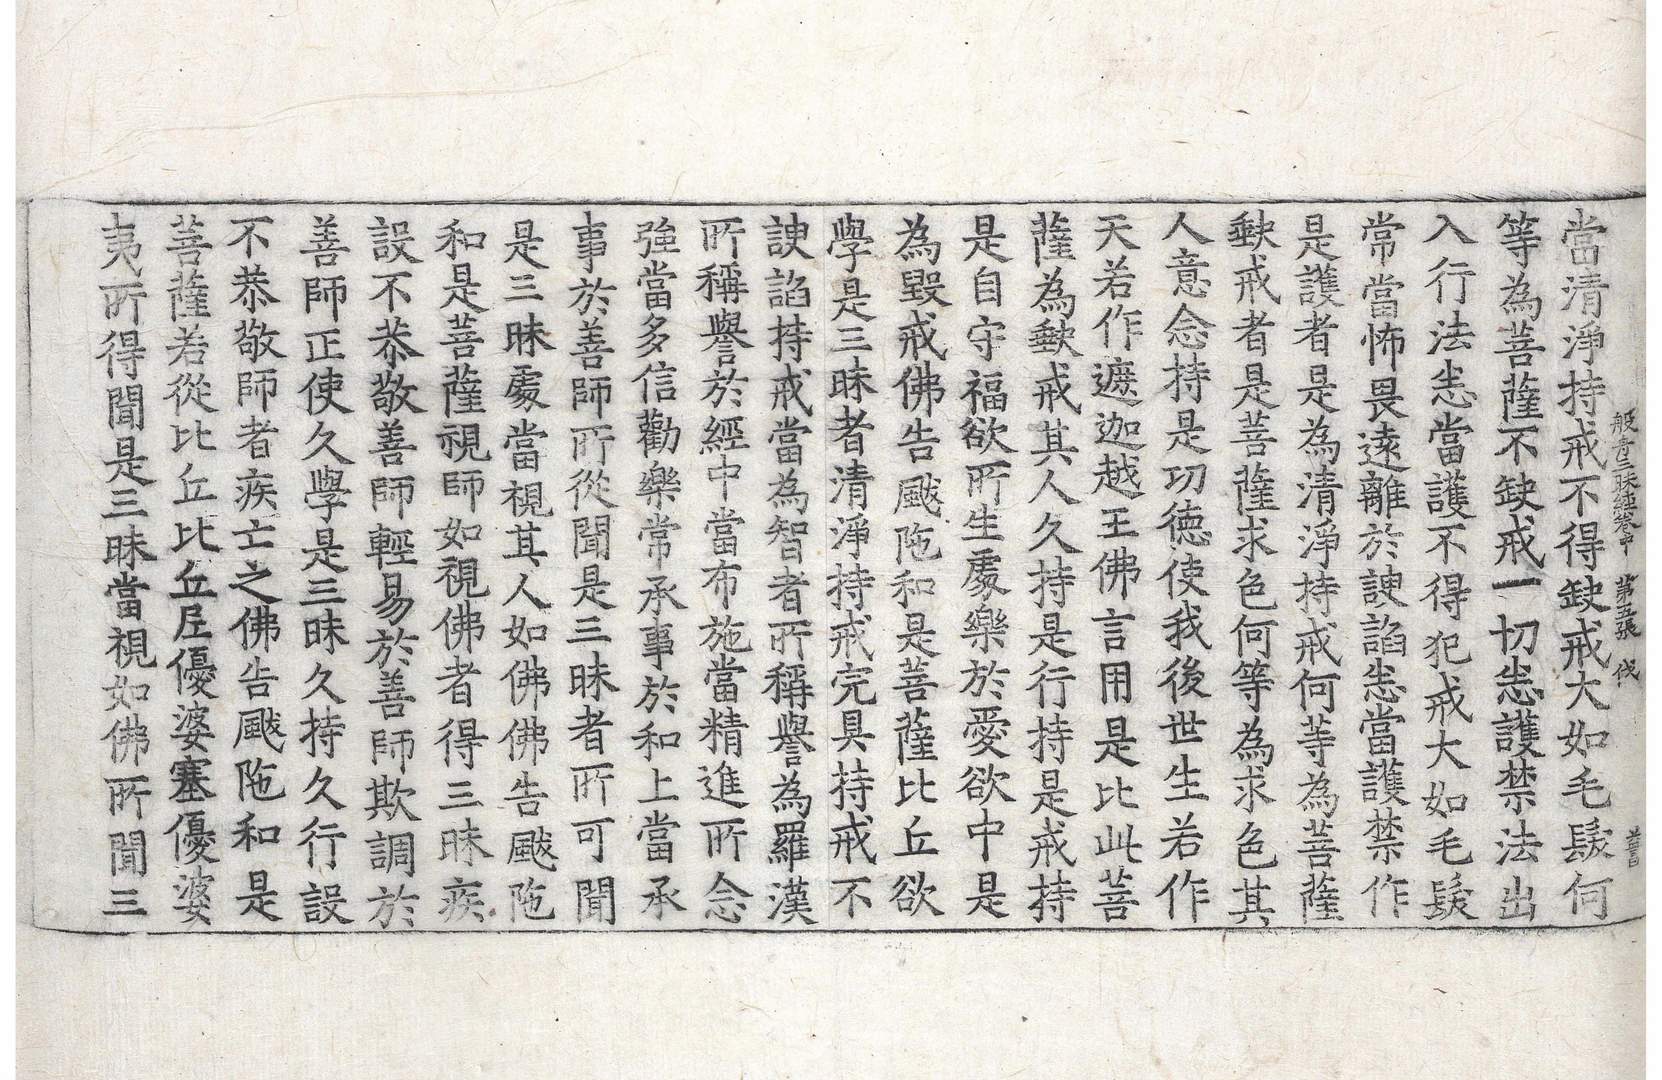 般舟三昧經卷中 第五張 伐
當清淨持戒不得缺戒大如毛髮何
等為菩薩不缺戒一切悉護禁法出
入行法悉當護不得犯戒大如毛髮
常當怖畏遠離於諛諂悉當護禁作
是護者是為清淨持戒何等為菩薩
缺戒者是菩薩求色何等為求色其
人意念持是功德使我後世生若作
天若作遮迦越王佛言用是比此菩
薩為缺戒其人久持是行持是戒持
是自守福欲所生處樂於愛欲中是
為毀戒佛告颰陁和是菩薩比丘欲
學是三昧者清淨持戒完具持戒不
諛諂持戒當為智者所稱譽為羅漢
所稱譽於經中當布施當精進所念
強當多信勸樂常承事於和上當承
事於善師所從聞是三昧者所可聞
是三昧處當視其人如佛佛告颰陁
和是菩薩視師如視佛者得三昧疾
設不恭敬善師輕易於善師欺調於
善師正使久學是三昧久持久行設
不恭敬師者疾亡之佛告颰陁和是
菩薩若從比丘比丘尼優婆塞優婆
夷所得聞是三昧當視如佛所聞三